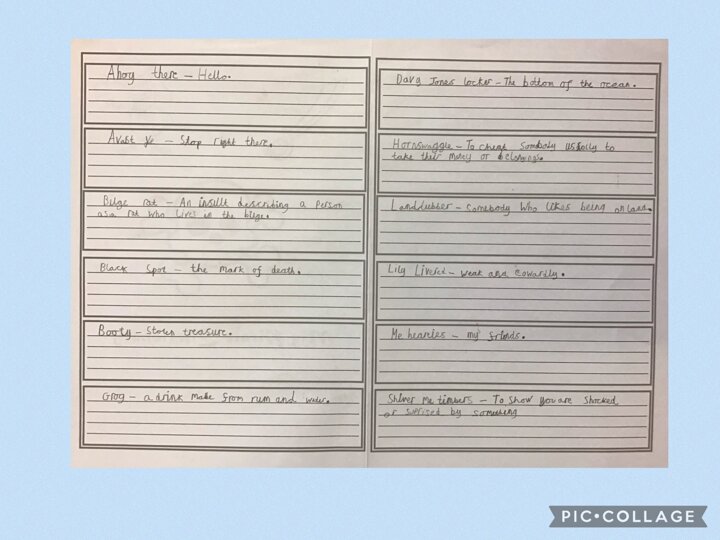 Ahoy there – Hello.
Avast ye – Stop right there.
Bilge rat – An insult describing a person
as a rat who lives in the bilge.
Black Spot – the mark of death.
Booty – Stolen treasure.
Grog – a drink made from rum and water.
Davy Jones locker – The bottom of the ocean.
Hornswaggle – To cheat Sombody usally to
take their mony or belongings.
Landlubber – Somebody who likes being on land.
Lily Livered – weak and cowardly.
Me hearties – my friends.
Shiver me timbers – To show you are shocked
or suprised by something
PIC•COLLAGE